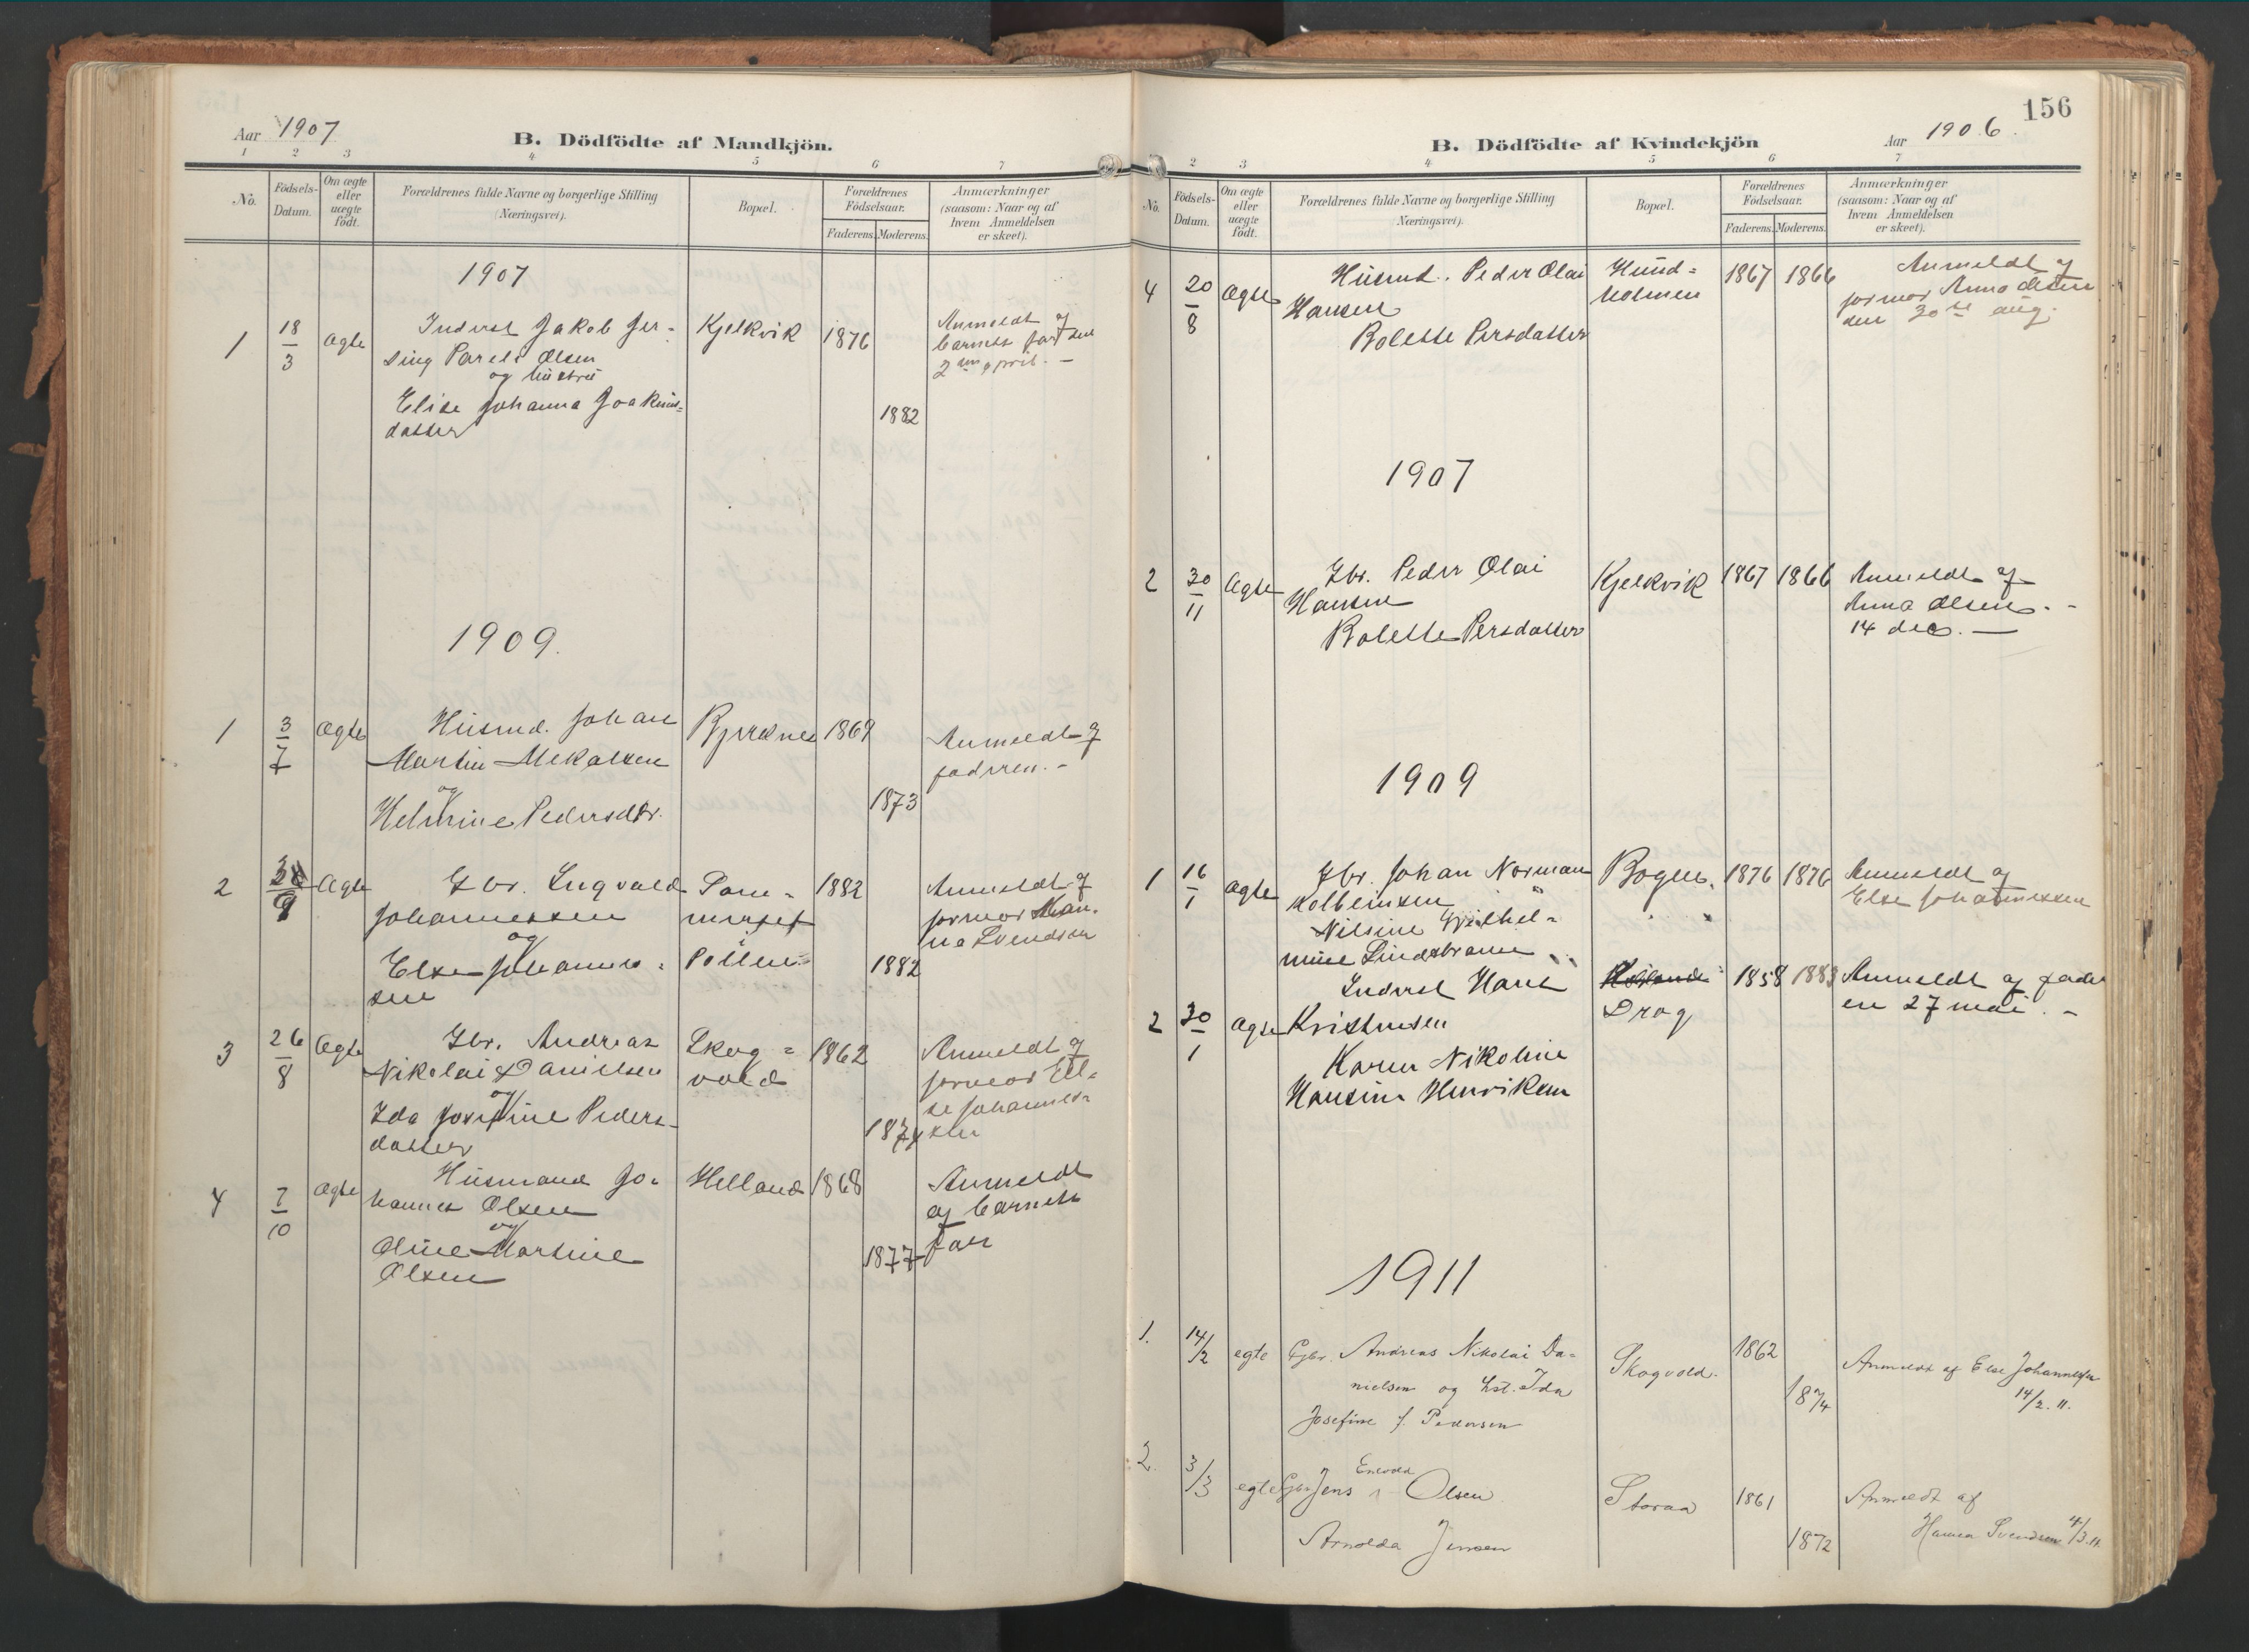 Aar 1907
B. Dödfödte af Mandkjön.
1 2 3 4 5 6 7
No.
Födsels-
Datum.
Om ægte
eller
uægte
födt.
Forældrenes fulde Navne og borgerlige Stilling
(Næringsvei).
Bopæl.
Forældrenes
Födselsaar.
Faderens. Moderens.
Anmærkninger
(saasom: Naar og af
hvem Anmeldelsen
er skeet).
1907
1 18/3 Ægte Inderst Jakob
Olsen
og hustru
Elise Johanna Joakims=
datter
Kjelkvik 1876
1882
Anmeldt af
barnets far den
2den april. –
1909.
1 3/7 Ægte Husmd. Johan
Martin Mekalsen
og
Helmine Pedersdtr.
1869
1873
Anmeldt af
faderen. –
2 Ægte Gbr. Ingvald
Johannessen
og
Else Johannes=
sen
Pollen
1882
1882
Anmeldt af
jormor Han-
na Svendsen
3 26/8 Ægte Gbr. Andreas
Nikolai Danielsen
og
Ida Josefine Peders-
datter
Skog=
vold
1862
1874
Anmeldt af
jormor El-
se Johannes=
sen
4 7/10 Ægte Husmand Jo=
hannes Olsen
og
Oline Martine
Olsen
Helland 1868
1877
Anmeldt
af barnets
far
156
B. Dödfödte af Kvindekjön
Aar 1906.
2 3 4 5 6 7
No.
Födsels-
Datum.
Om ægte
eller
uægte
födt.
Forældrenes fulde Navne og borgerlige Stilling
(Næringsvei).
Bopæl.
Forældrenes
Födselsaar.
Faderens. Moderens.
Anmærkninger
(saasom: Naar og af
hvem Anmeldelsen
er skeet).
4 20/8 Ægte Husmd. Peder Olai
Hansen
Bolette Persdatter
Hund=
holmen
1867 1866
Anmeldt af
jormor Anna Olsen
den 30te aug.
1907
2 30/11 Ægte Gbr. Peder Olai
Hansen
Bolette Persdatter
Kjelkvik 1867 1866
Anmeldt af
Anna Olsen. -
14 dec. —
1909
1 16/1 Ægte Gbr. Johan Norman
Kolbeinsen
Nilsine Vilhel=
mine Lindstrøm
Bogen. 1876 1876
Anmeldt af
Else Johannessen
2 30/1 Ægte Inderst Hans
Kristensen
Karen Nikoline
Hansine Henriksen
Drag
1858 1883
Anmeldt af fader
en 27 mai. –
1911
1. 14/2 egte Gbr. Andreas Nikolai Da=
nielsen og hst. Ida
Josefine f. Pedersen
Skogvold.
1862
1874
Anmeldt af Else Johannessen
14/2. 11.
2. 3/3 egte Gbr Jens Olsen
Arnolda Jensen
Storaa 1861
1872
Anmeldt af
Hanna Svendsen 4/3. 11.